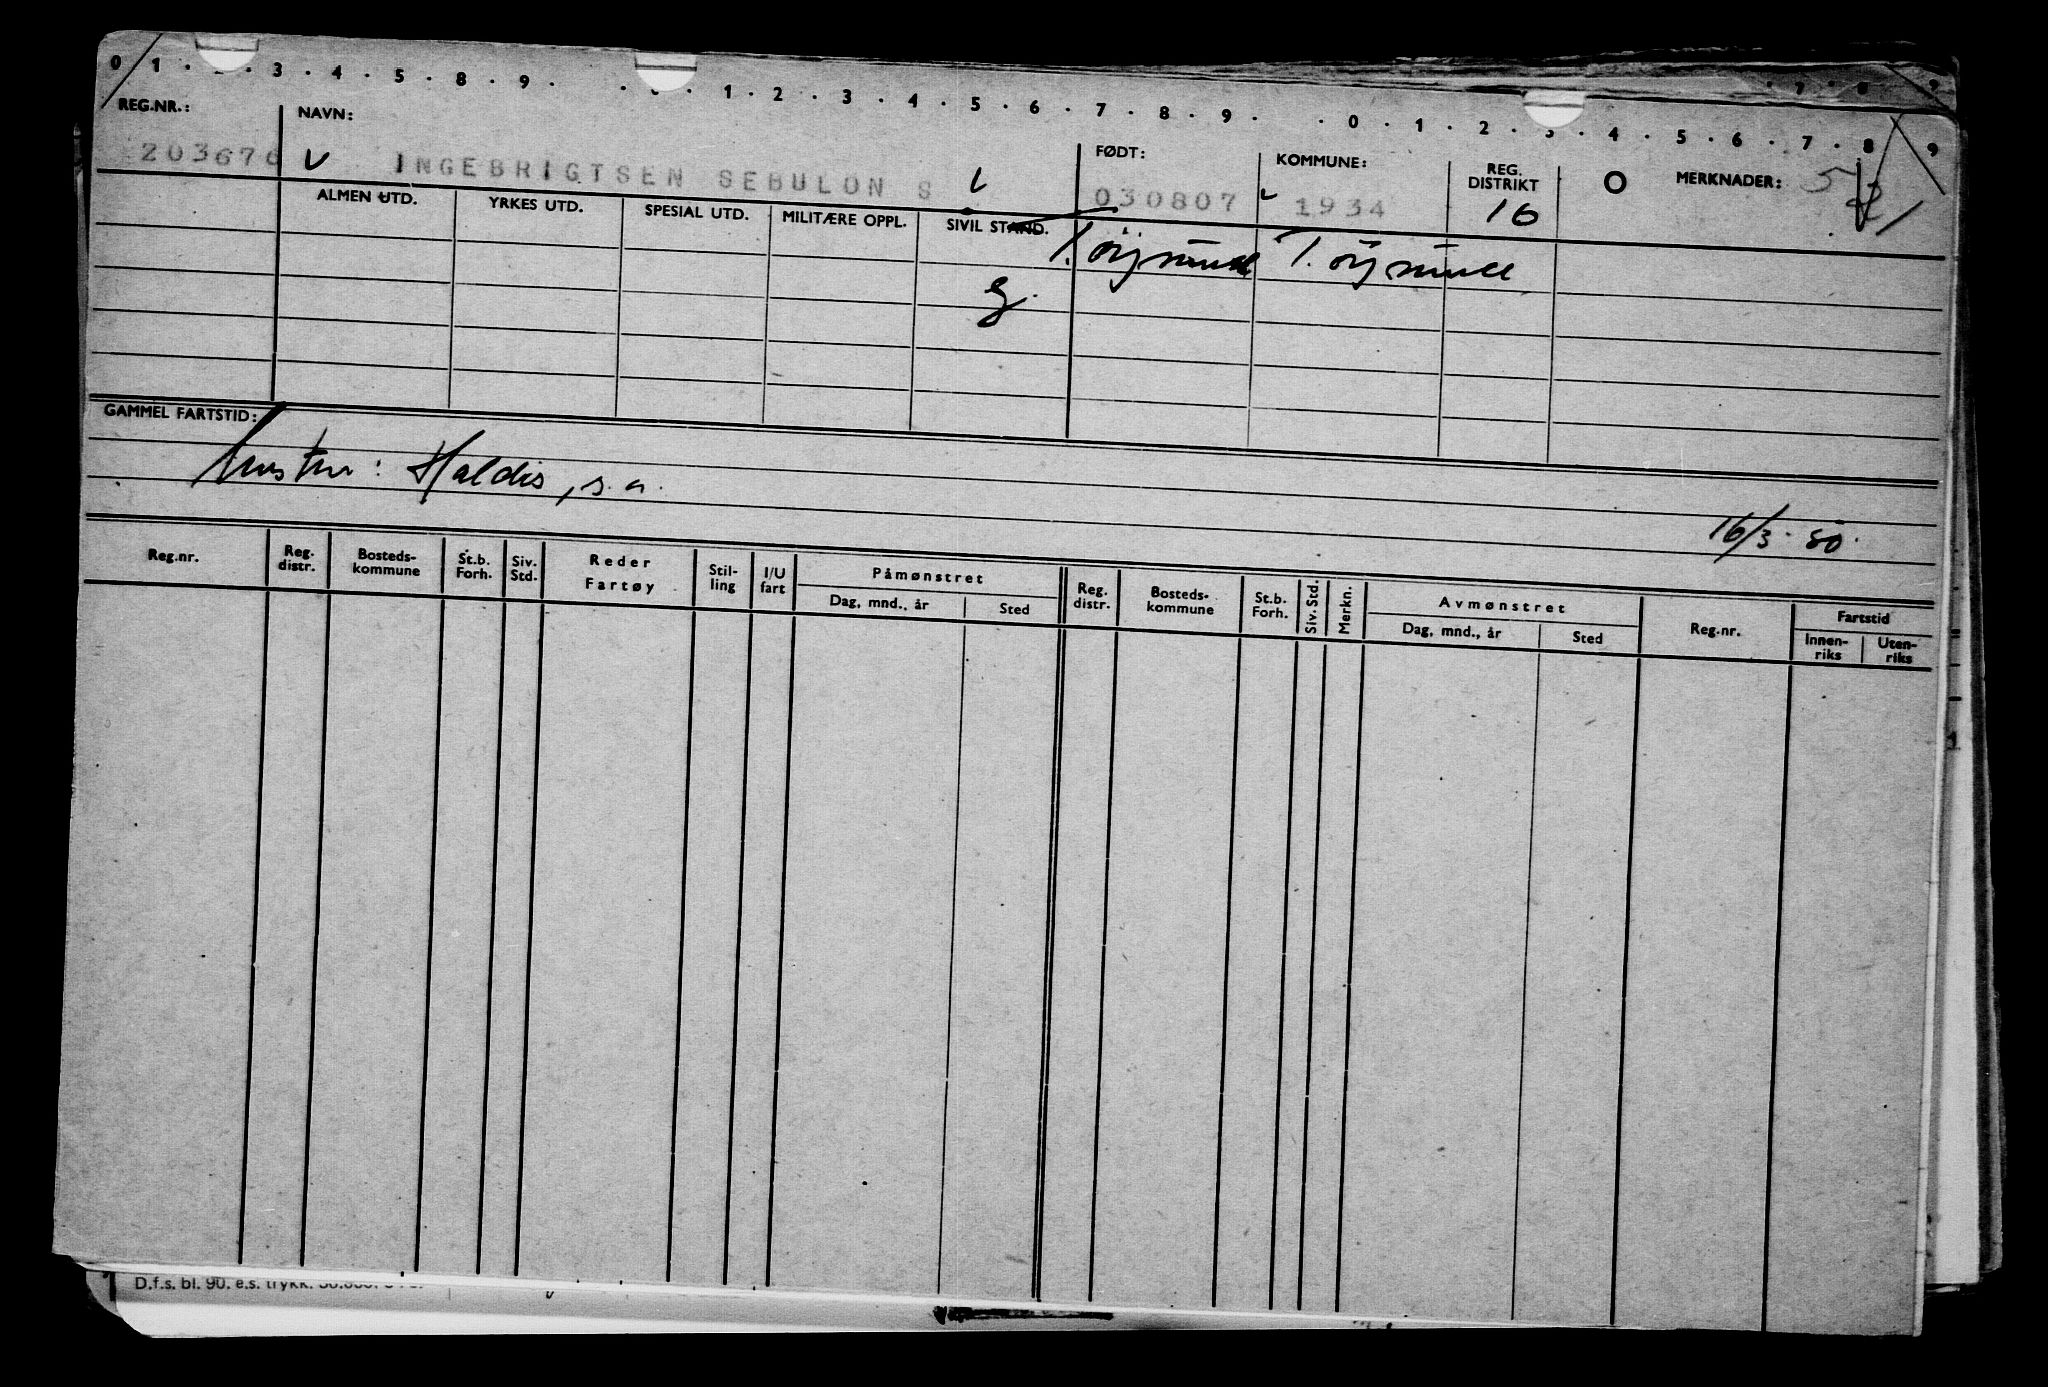 0 1 · 2 · 3 · 4 · 5 · 8 · 9 · · 0 · 1 · 2 · 3 · 4 · 5 · 6 · 7 · 8 · 9 · · 0 · 1 · 2 · 3 · 4 · 5 · 6 · 7 · 8 · 9
REG.NR.: NAVN: FØDT: KOMMUNE: REG. DISTRIKT O MERKNADER:
203676 INGEBRIGTSEN SEBULON S 030807 1934 16
ALMEN UTD. YRKES UTD. SPESIAL UTD. MILITÆRE OPPL. SIVIL STAND.
T. öysund T. öysund
g.
GAMMEL FARTSTID:
Hustru: Haldis, s.a.
16/3 · 50 ·
Reg.nr. Reg. distr. Bosteds-kommune St.b. Forh. Siv. Std. Reder Fartøy Stil-ling I/U fart Påmønstret Dag, mnd., år Sted Reg. distr. Bosteds-kommune St.b. Forh. Siv. Std. Merkn. Avmønstret Dag, mnd., år Sted Reg.nr. Fartstid Innen-riks Uten-riks
D.f.s. bl. 90. e.s. trykk.